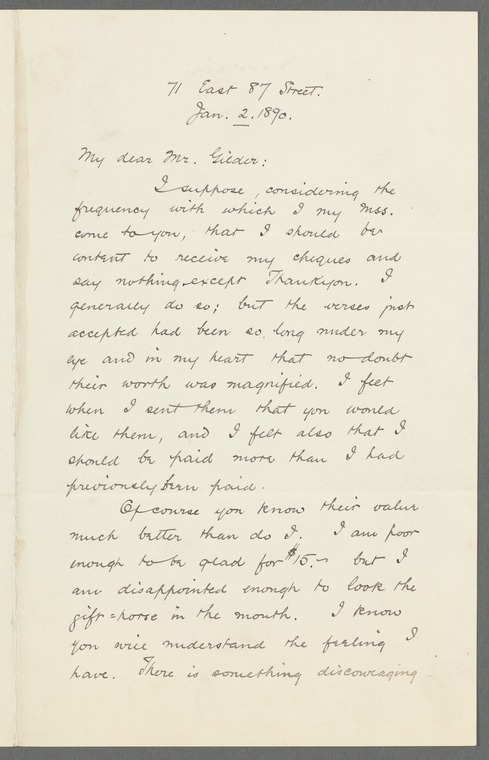 71 East 87 Street.
Jan. 2. 1890.
My dear Mr. Gilder:
I suppose, considering the
frequency with which I my Mss.
come to you, that I should be
content to receive my cheques and
say nothing except Thankyou. I
generally do so; but the verses just
accepted had been so long under my
eye and in my heart that no doubt
their worth was magnified. I felt
when I sent them that you would
like them, and I felt also that I
should be paid more than I had
previously been paid.
Of course you know their value
much better than do I. I am poor
enough to be glad for $15.- but I
am disappointed enough to look the
gift=horse in the mouth. I know
you will understand the feeling I
have. There is something discouraging